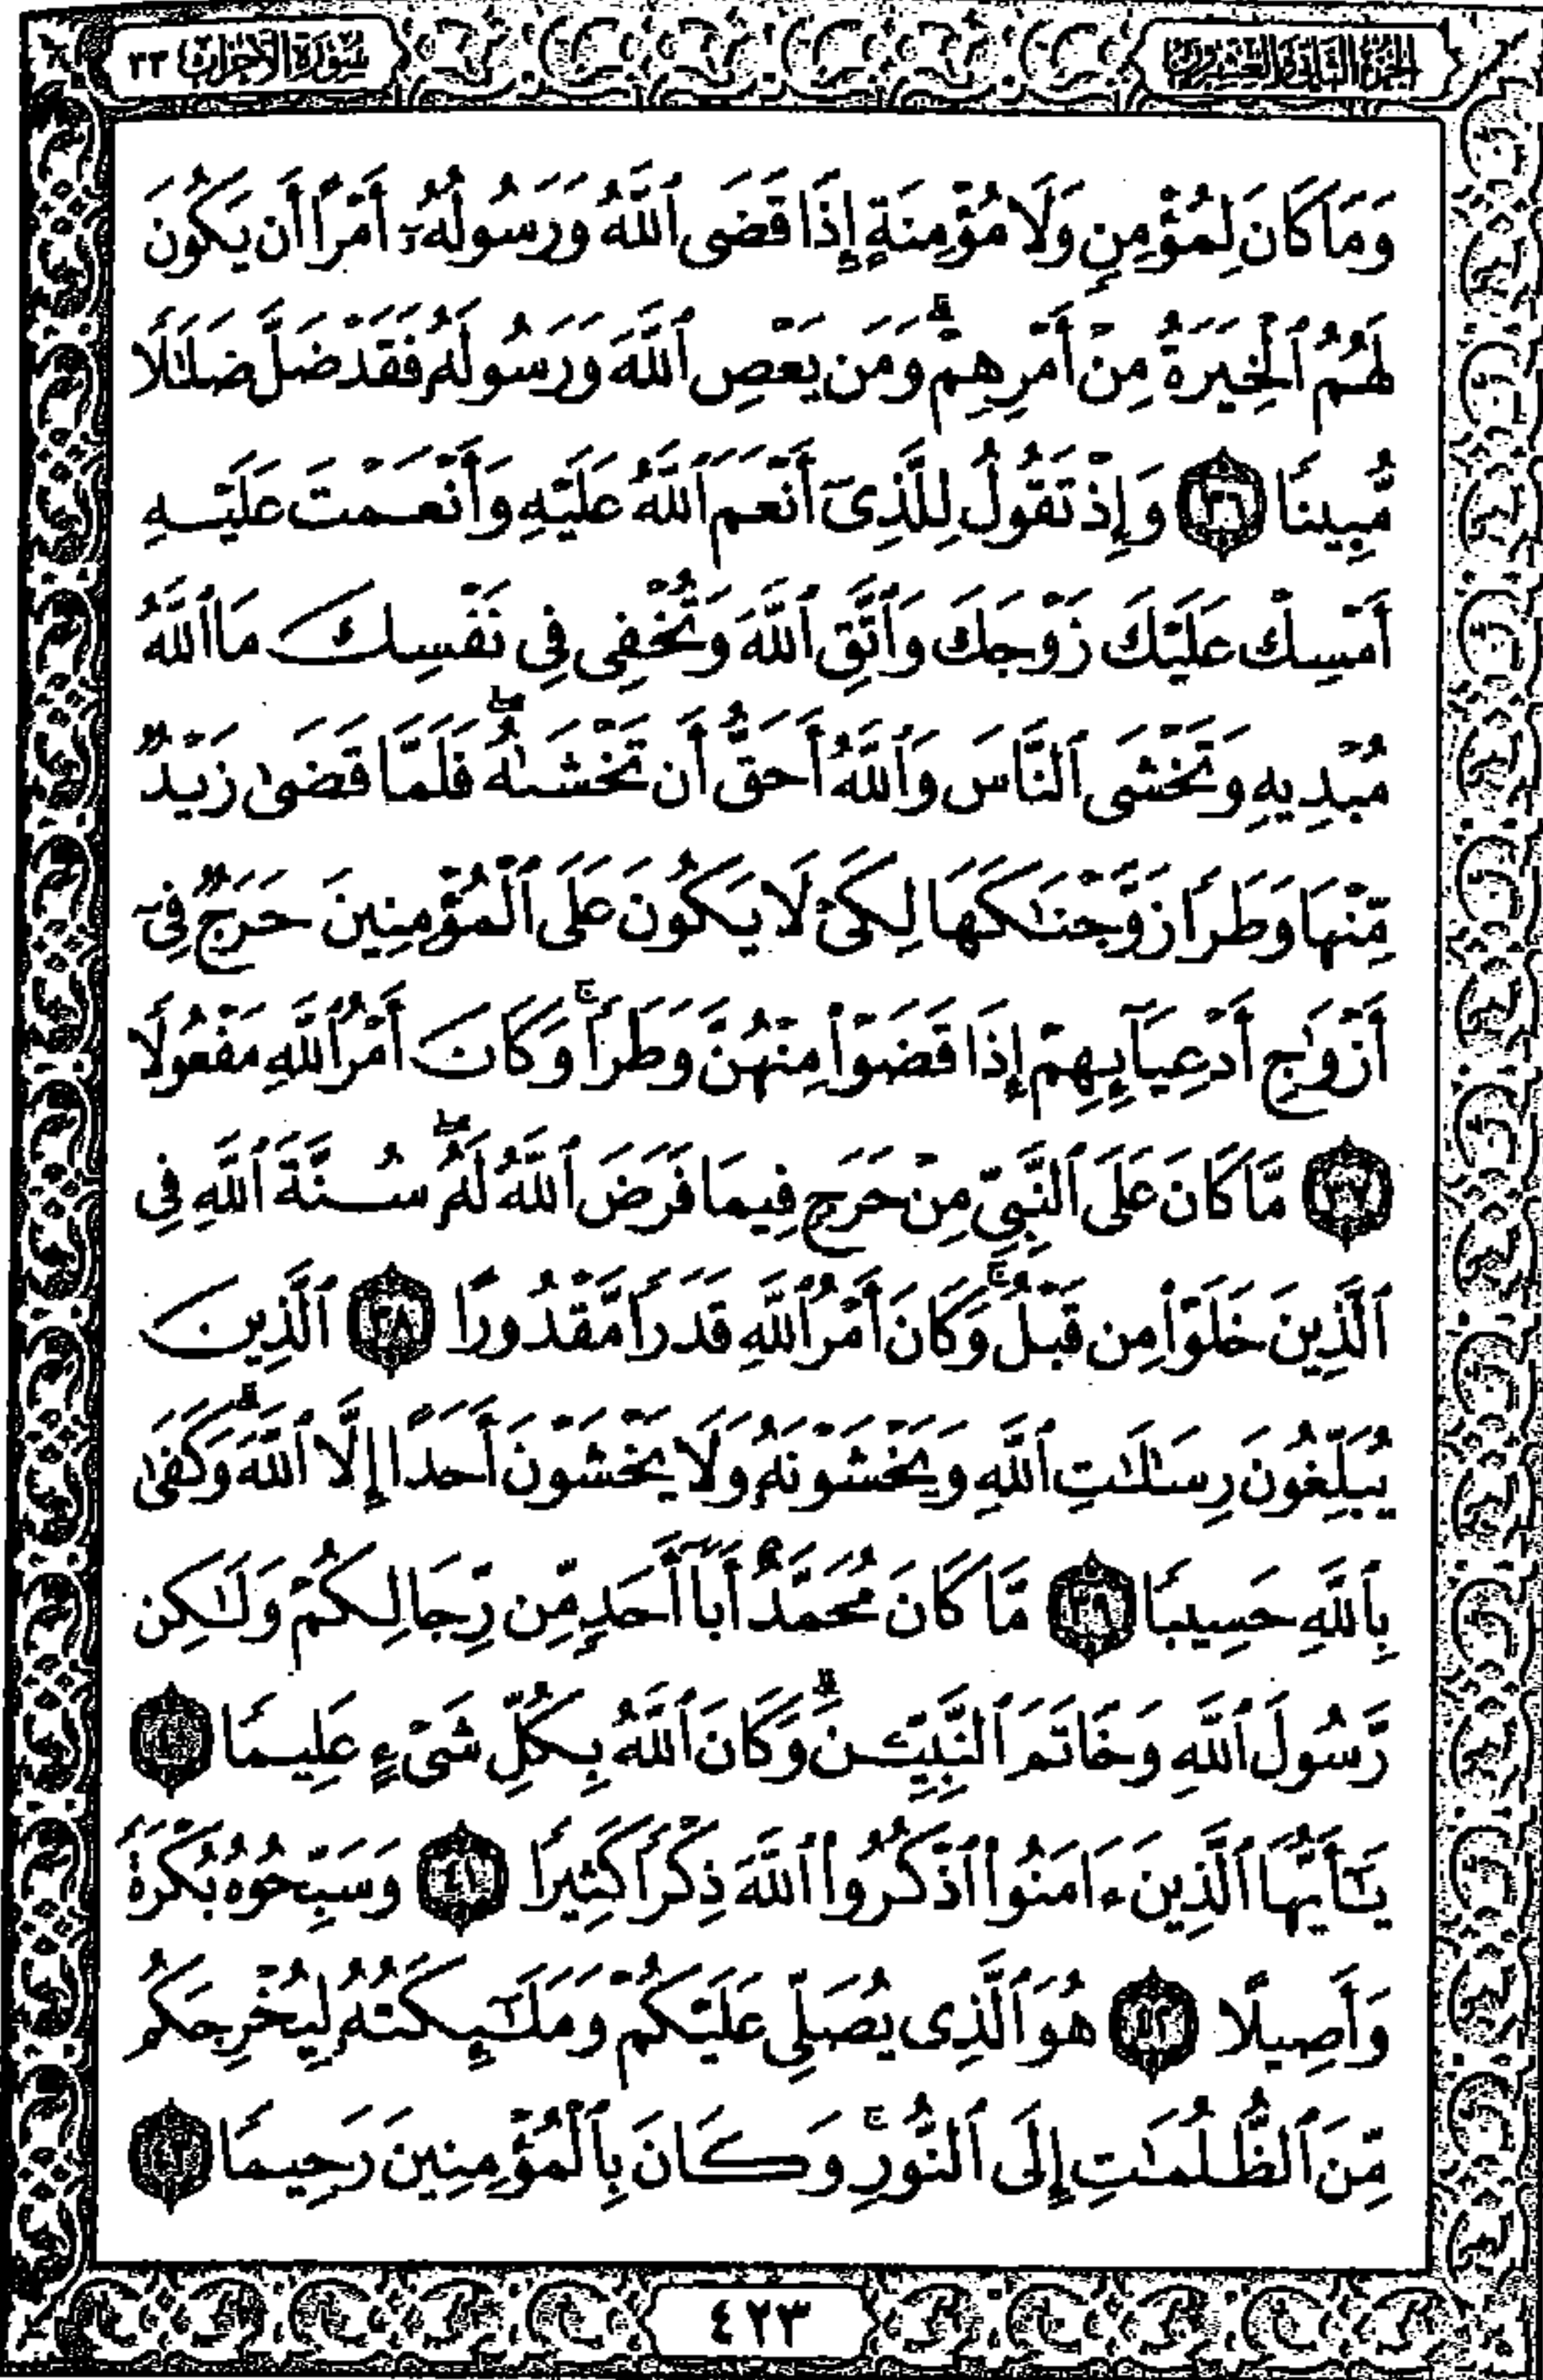 الجزء الثاني والعشرون
سورة الأحزاب ٣٣
وَمَا كَانَ لِمُؤْمِنٍ وَلَا مُؤْمِنَةٍ إِذَا قَضَى ٱللَّهُ وَرَسُولُهُۥٓ أَمْرًا أَن يَكُونَ
لَهُمُ ٱلْخِيَرَةُ مِنْ أَمْرِهِمْ ۗ وَمَن يَعْصِ ٱللَّهَ وَرَسُولَهُۥ فَقَدْ ضَلَّ ضَلَٰلًا
مُّبِينًا ٣٦ وَإِذْ تَقُولُ لِلَّذِىٓ أَنْعَمَ ٱللَّهُ عَلَيْهِ وَأَنْعَمْتَ عَلَيْهِ
أَمْسِكْ عَلَيْكَ زَوْجَكَ وَٱتَّقِ ٱللَّهَ وَتُخْفِى فِى نَفْسِكَ مَا ٱللَّهُ
مُبْدِيهِ وَتَخْشَى ٱلنَّاسَ وَٱللَّهُ أَحَقُّ أَن تَخْشَىٰهُ ۖ فَلَمَّا قَضَىٰ زَيْدٌ
مِّنْهَا وَطَرًا زَوَّجْنَٰكَهَا لِكَىْ لَا يَكُونَ عَلَى ٱلْمُؤْمِنِينَ حَرَجٌ فِىٓ
أَزْوَٰجِ أَدْعِيَآئِهِمْ إِذَا قَضَوْا۟ مِنْهُنَّ وَطَرًا ۚ وَكَانَ أَمْرُ ٱللَّهِ مَفْعُولًا
٣٧ مَّا كَانَ عَلَى ٱلنَّبِىِّ مِنْ حَرَجٍ فِيمَا فَرَضَ ٱللَّهُ لَهُۥ ۖ سُنَّةَ ٱللَّهِ فِى
ٱلَّذِينَ خَلَوْا۟ مِن قَبْلُ ۚ وَكَانَ أَمْرُ ٱللَّهِ قَدَرًا مَّقْدُورًا ٣٨ ٱلَّذِينَ
يُبَلِّغُونَ رِسَٰلَٰتِ ٱللَّهِ وَيَخْشَوْنَهُۥ وَلَا يَخْشَوْنَ أَحَدًا إِلَّا ٱللَّهَ ۗ وَكَفَىٰ
بِٱللَّهِ حَسِيبًا ٣٩ مَّا كَانَ مُحَمَّدٌ أَبَآ أَحَدٍ مِّن رِّجَالِكُمْ وَلَٰكِن
رَّسُولَ ٱللَّهِ وَخَاتَمَ ٱلنَّبِيِّـۧنَ ۗ وَكَانَ ٱللَّهُ بِكُلِّ شَىْءٍ عَلِيمًا ٤٠
يَٰٓأَيُّهَا ٱلَّذِينَ ءَامَنُوا۟ ٱذْكُرُوا۟ ٱللَّهَ ذِكْرًا كَثِيرًا ٤١ وَسَبِّحُوهُ بُكْرَةً
وَأَصِيلًا ٤٢ هُوَ ٱلَّذِى يُصَلِّى عَلَيْكُمْ وَمَلَٰٓئِكَتُهُۥ لِيُخْرِجَكُم
مِّنَ ٱلظُّلُمَٰتِ إِلَى ٱلنُّورِ ۚ وَكَانَ بِٱلْمُؤْمِنِينَ رَحِيمًا ٤٣
٤٢٣